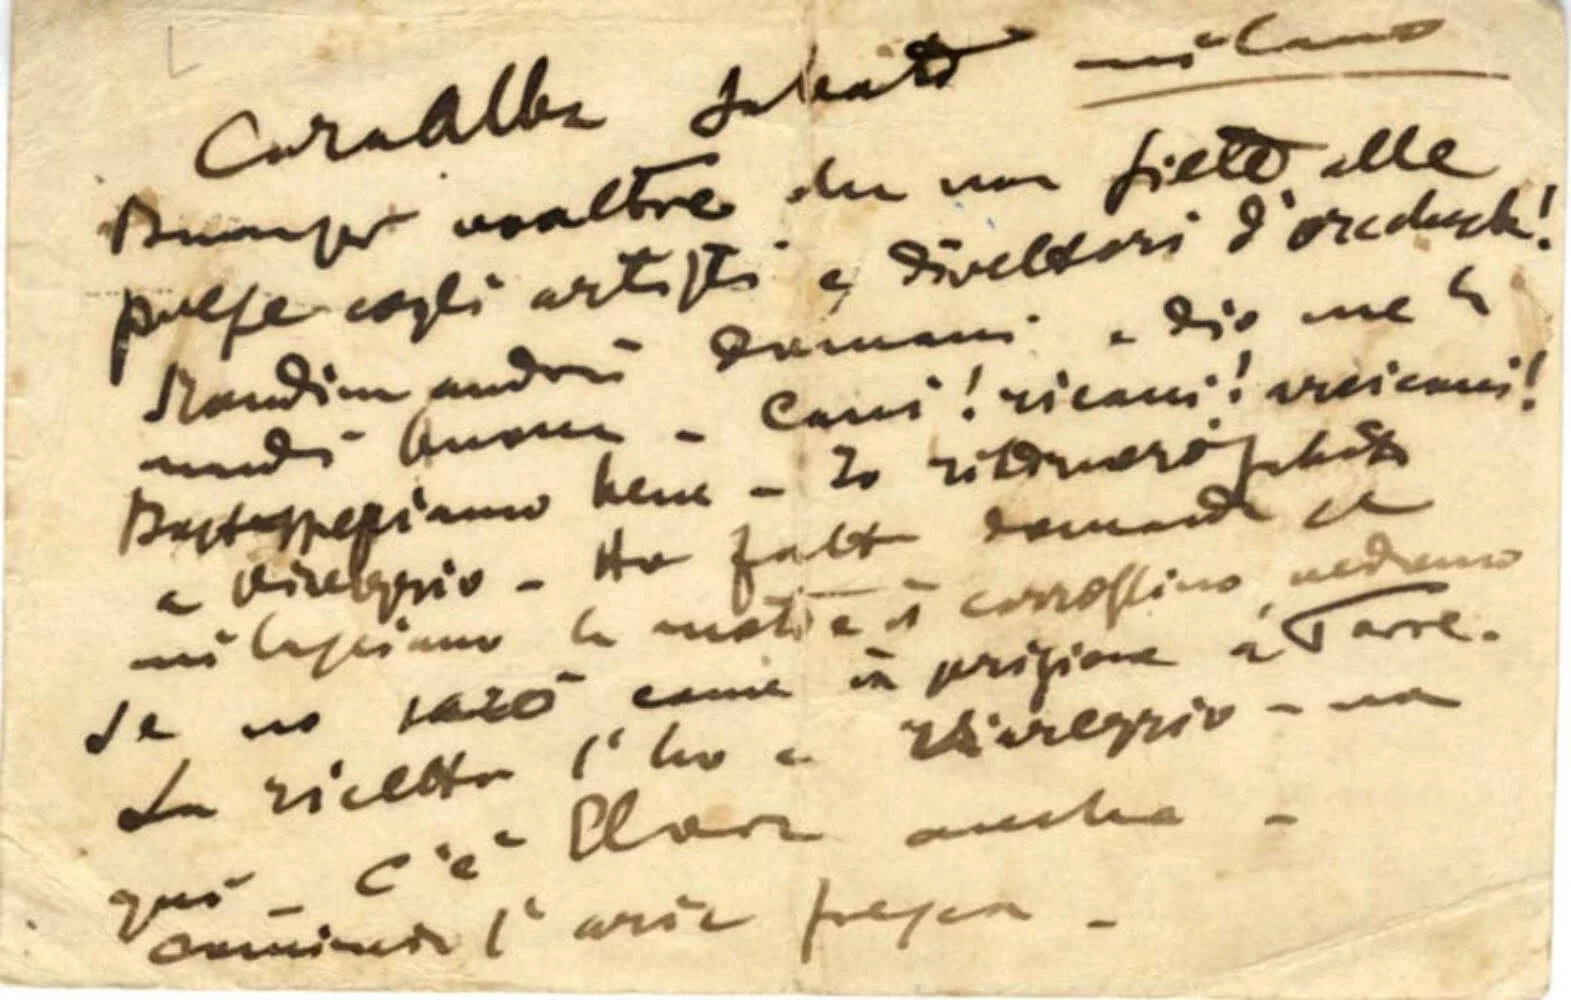 Cara Alba Sabato Milano
Buon per voaltre che non siete alle
prese cogli artisti e direttori d'orchest!
andrò domani e Dio me la
mandi buona - Cani! ricani! arcicani!
bene - Io ritornerò sabato
a Viareggio - Ho fatto domanda se
mi lasciano la moto e il carrossino vedremo
se no sarò come in prigione a Torre.
La ricetta l'ho a Viareggio - non
qui - C'è Elvira anche -
comincia l'aria fresca -